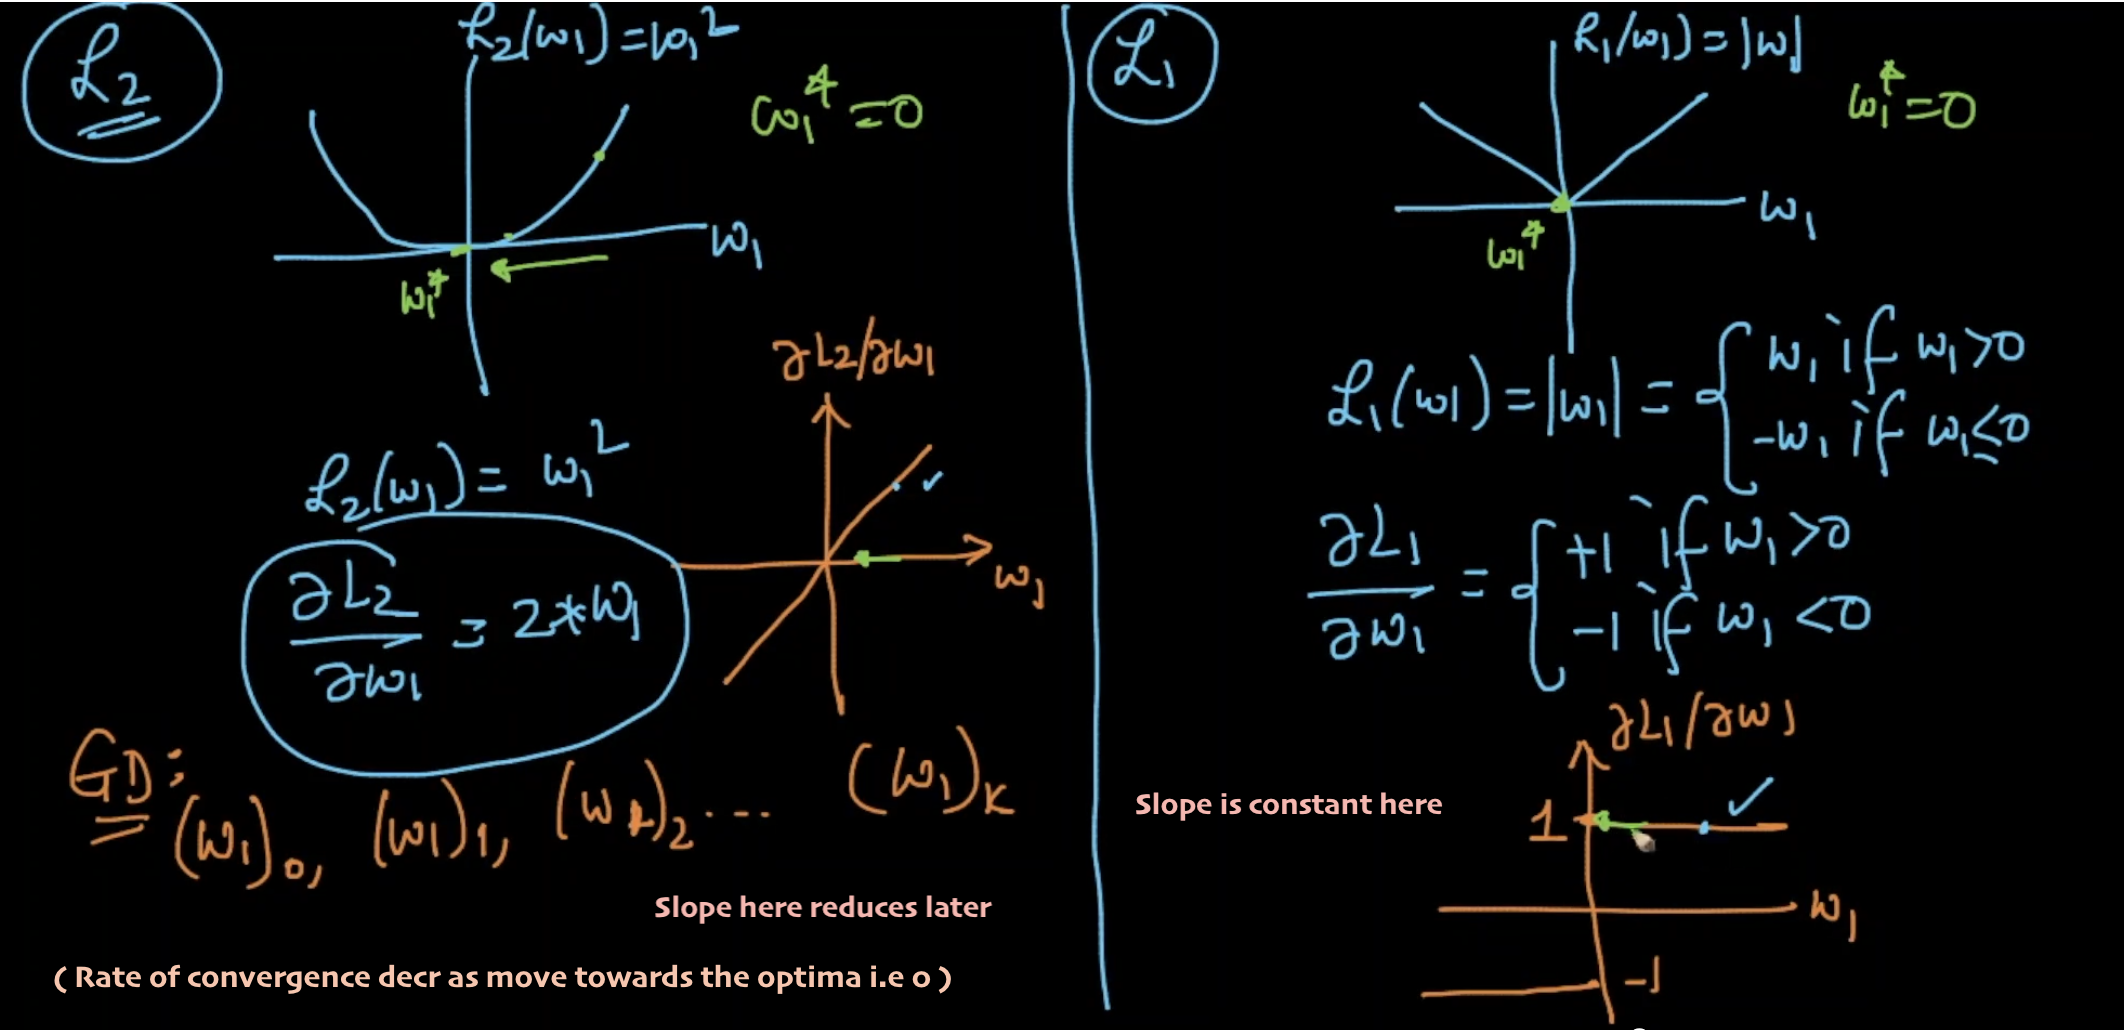 L₂
L₂(w₁) = w₁²
w₁* = 0
w₁
w₁*
∂L₂/∂w₁
w₁
L₂(w₁) = w₁²
∂L₂/∂w₁ = 2*w₁
GD:
(w₁)₀, (w₁)₁, (w₁)₂ ... (w₁)ₖ
Slope here reduces later
( Rate of convergence decr as move towards the optima i.e 0 )
L₁
L₁(w₁) = |w₁|
w₁* = 0
w₁
w₁*
L₁(w₁) = |w₁| = { w₁ if w₁ > 0
-w₁ if w₁ ≤ 0
∂L₁/∂w₁ = { +1 if w₁ > 0
-1 if w₁ < 0
∂L₁/∂w₁
Slope is constant here
1
w₁
-1